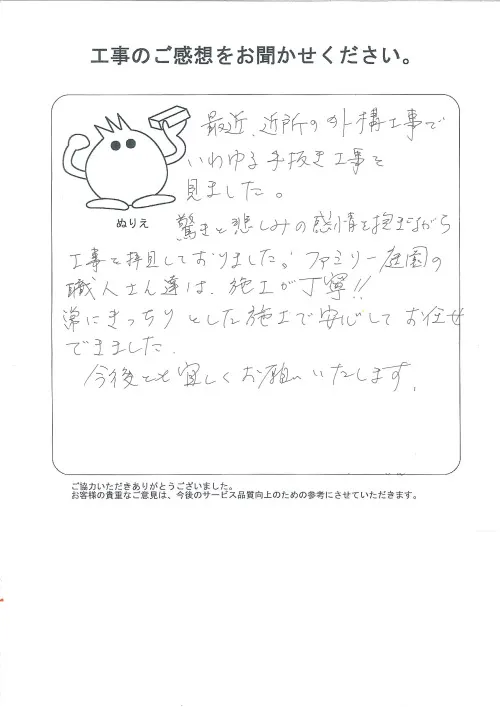 工事のご感想をお聞かせください。
最近、近所の外構工事で
いわゆる手抜き工事を
見ました。
ぬりえ
驚きと悲しみの感情を抱きながら
工事を拝見しておりました。ファミリー庭園の
職人さん達は、施工が丁寧!!
常にきっちりとした施工で安心してお任せ
できました.
今後とも宜しくお願いいたします.
ご協力いただきありがとうございました。
お客様の貴重なご意見は、今後のサービス品質向上のための参考にさせていただきます。